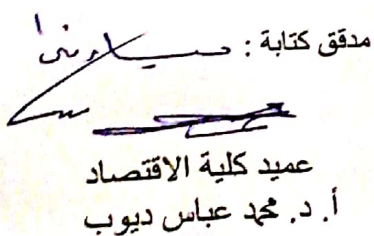 مدقق كتابة :
عميد كلية الاقتصاد
أ. د. محمد عباس ديوب